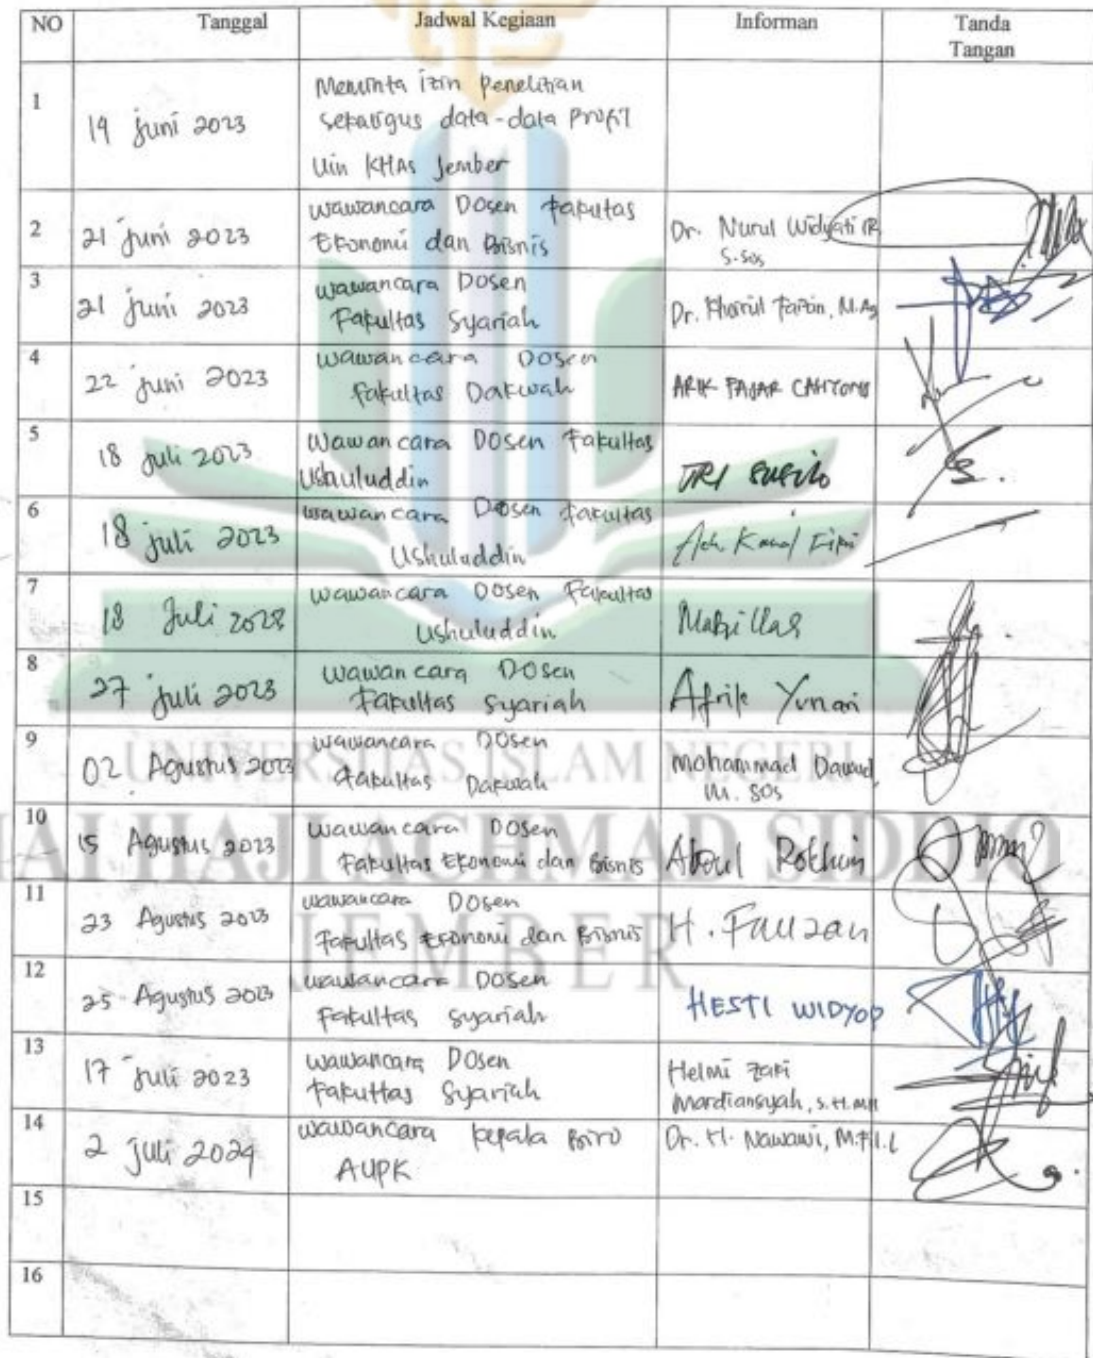 NO Tanggal Jadwal Kegiaan Informan Tanda
Tangan
1 19 Juni 2023 Meminta izin penelitian
sekaligus data-data Profil
Uin KHAS Jember
2 21 Juni 2023 Wawancara Dosen Fakultas
Ekonomi dan Bisnis
Dr. Nurul Widyati
S.sos
3 21 Juni 2023 Wawancara Dosen
Fakultas Syariah
Dr. Khoirul Faizin, M.Ag
4 22 Juni 2023 Wawancara Dosen
Fakultas Dakwah
ARIK FAJAR CAHYONO
5 18 Juli 2023 Wawancara Dosen Fakultas
Ushuluddin
TRI SUSILO
6 18 Juli 2023 Wawancara Dosen Fakultas
Ushuluddin
Ach.
7 18 Juli 2023 Wawancara Dosen Fakultas
Ushuluddin
8 27 Juli 2023 Wawancara Dosen
Fakultas Syariah
Afrik Yunari
9 02 Agustus 2023 Wawancara Dosen
Fakultas Dakwah
Mohammad Dawud,
M. SOS
10 15 Agustus 2023 Wawancara Dosen
Fakultas Ekonomi dan Bisnis
Abdul Rokhim
11 23 Agustus 2023 Wawancara Dosen
Fakultas Ekonomi dan Bisnis
H. Fauzan
12 25 Agustus 2023 Wawancara Dosen
Fakultas Syariah
HESTI WIDYO
13 17 Juli 2023 Wawancara Dosen
Fakultas Syariah
Helmi Zaki
Mardiansyah, S.H. MH
14 2 Juli 2024 Wawancara Kepala Biro
AUPK
Dr. H. Nawawi,
15
16
UNIVERSITAS ISLAM NEGERI
HAI HAJI ACHMAD SIDDIQ
JEMBER